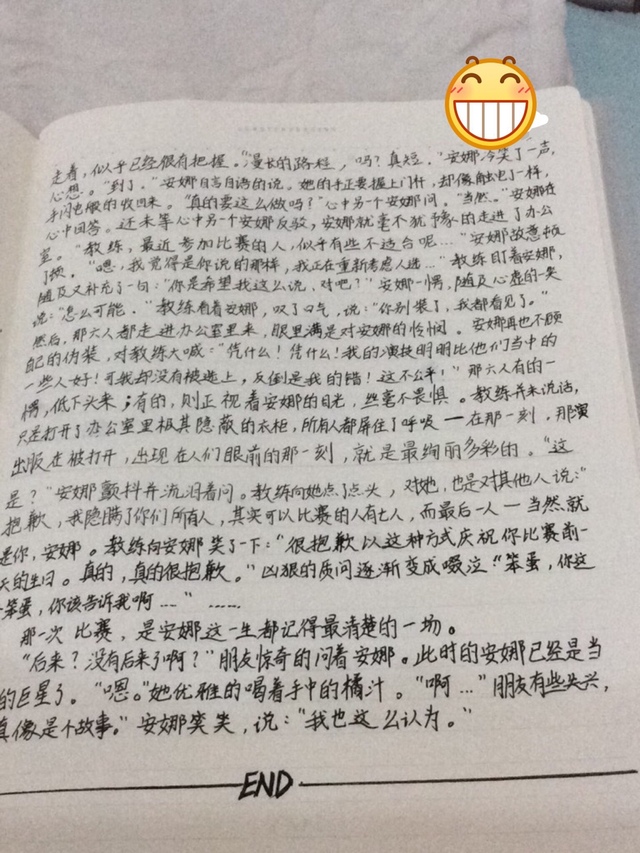 走着，似乎已经很有把握。"漫长的路程，吗？真短，"安娜冷笑了一声，
心想。"到了，"安娜自言自语的说。她的手正要握上门什，却像触电了一样，
手闪电般的收回来。"真的要这么做吗？"心中另一个安娜问。"当然。"安娜在
心中回答。还未等心中另一个安娜反驳，安娜就毫不犹豫的走进了办公
室。"教练，最近参加比赛的人，似乎有些不适合呢…"安娜故意
了顿。"嗯，我觉得是你说的那样，我正在重新考虑人选…"教练盯着安娜，
随及又补充了一句："你是希望我这么说，对吧？"安娜一愣，随及心虚的一笑
说："怎么可能，"教练看着安娜，叹了口气，说："你别装了，我都看见了。"
然后，那六人都走进办公室里来，眼里满是对安娜的怜悯。安娜再也不顾
自己的伪装，对教练大喊："凭什么！凭什么！我的演技明明比他们当中的
一些人好！可我却没有被选上，反倒是我的错！这不公平！"那六人有的一
愣，低下头来；有的，则正视着安娜的目光，丝毫不畏惧。教练并未说话，
只是打开了办公室里极其隐蔽的衣柜，所有人都屏住了呼吸——在那一刻，那演
出版在被打开，出现在人们眼前的那一刻，就是最绚丽多彩的。"这
是？"安娜颤抖并流泪着问。教练向她点了点头，对她，也是对其他人说："
抱歉，我隐瞒了你们所有人，其实可以比赛的人有七人，而最后一人——当然就
是你，安娜。教练向安娜笑了一下："很抱歉以这种方式庆祝你比赛前一
天的生日。真的，真的很抱歉。"凶狠的质问逐渐变成啜泣："笨蛋，你这
笨蛋，你该告诉我啊…"……
那一次比赛，是安娜这一生都记得最清楚的一场。
"后来？没有后来了啊？"朋友惊奇的问着安娜。此时的安娜已经是当
的巨星了。"嗯。"她优雅的喝着手中的橘汁。"啊…"朋友有些失兴，
真像是个故事。"安娜笑笑，说："我也这么认为。"
END